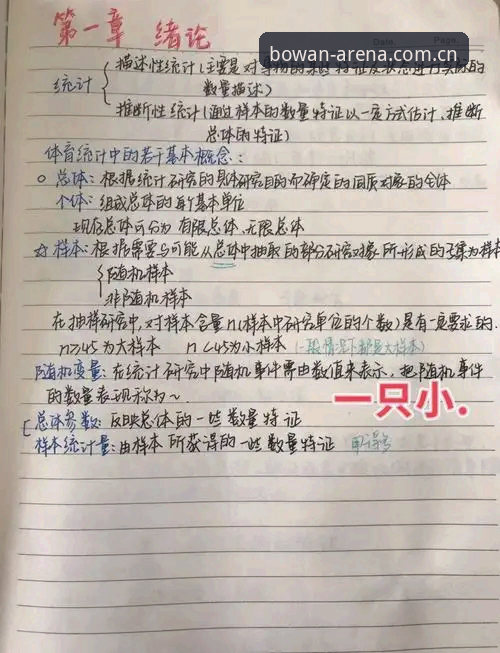 第一章 绪论
bowan-arena.com.cn
Date
统计
描述性统计(主要是对事物的某些特征及状态进行实际的
数量描述)
推断性统计(通过样本的数量特征以一定方式估计、推断
总体的特征)
体育统计中的若干基本概念:
总体:根据统计研究的具体研究目的而确定的同质对象的全体
个体:组成总体的每个基本单位
现存总体可分为 有限总体、无限总体
☆ 样本:根据需要与可能从总体中抽取的部分研究对象所形成的子集为样本
随机样本
非随机样本
在抽样研究中,对样本含量n(样本中研究单位的个数)是有一定要求的.
n≥45为大样本 n<45为小样本 (一般情况下都是大样本)
随机变量:在统计研究中随机事件需由数值来表示,把随机事件
的数量表现称为~.
一只小.
总体参数:反映总体的一些数量特征
样本统计量:由样本所获得的一些数量特征